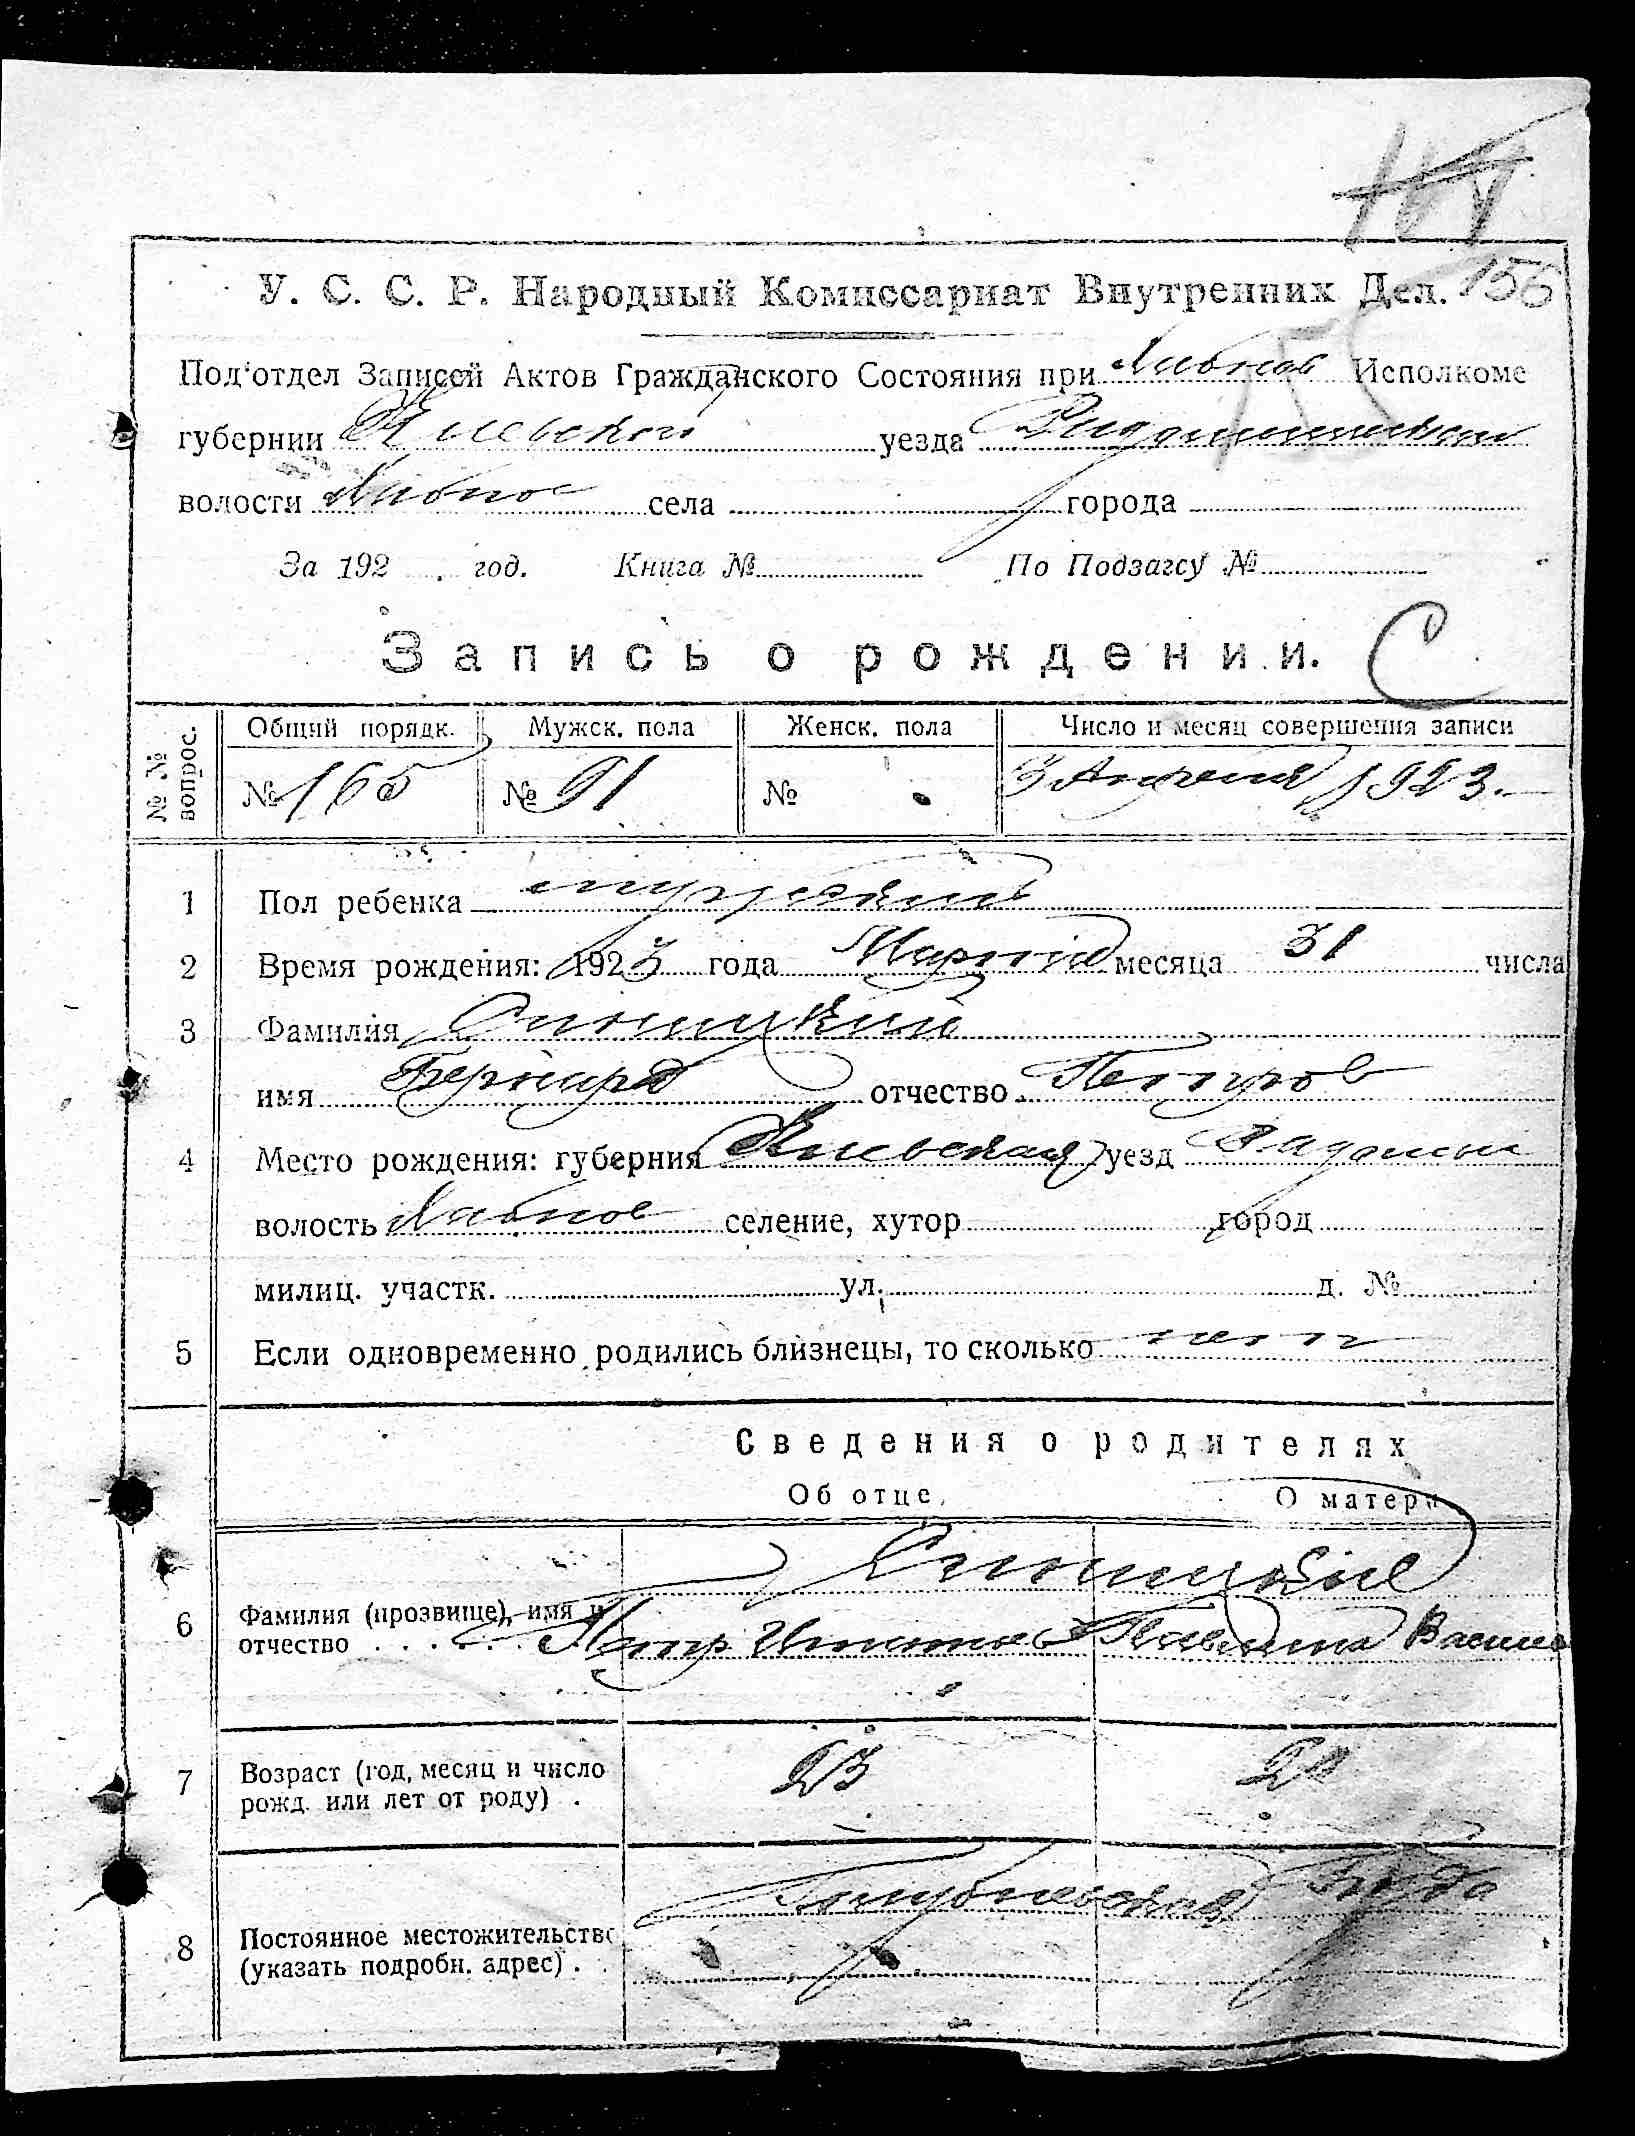 156
У. С. С. Р. Народный Комиссариат Внутренних Дел.
Под'отдел Записей Актов Гражданского Состояния при Хабнов Исполкоме
губернии Киевской уезда Радомышльском
волости Хабное села города
За 192 . год. Книга № По Подзагсу №
Запись о рождении. С
№ № вопрос. Общий порядк. Мужск. пола Женск. пола Число и месяц совершения записи
№ 165 № 91 № 3 Апреля 1923.
1 Пол ребенка мужеский
2 Время рождения: 1923 года Марта месяца 31 числа
3 Фамилия Синицкий
имя Бернард отчество Петров
4 Место рождения: губерния Киевская уезд Радомыс
волость Хабное селение, хутор город
милиц. участк. ул. д. №
5 Если одновременно родились близнецы, то сколько нет
Сведения о родителях
Об отце, О матери
Синицкие
6 Фамилия (прозвище), имя и
отчество . . . . Петр Павлина Васил
7 Возраст (год, месяц и число
рожд. или лет от роду) . 23
Буда
8 Постоянное местожительство
(указать подробн. адрес) . .